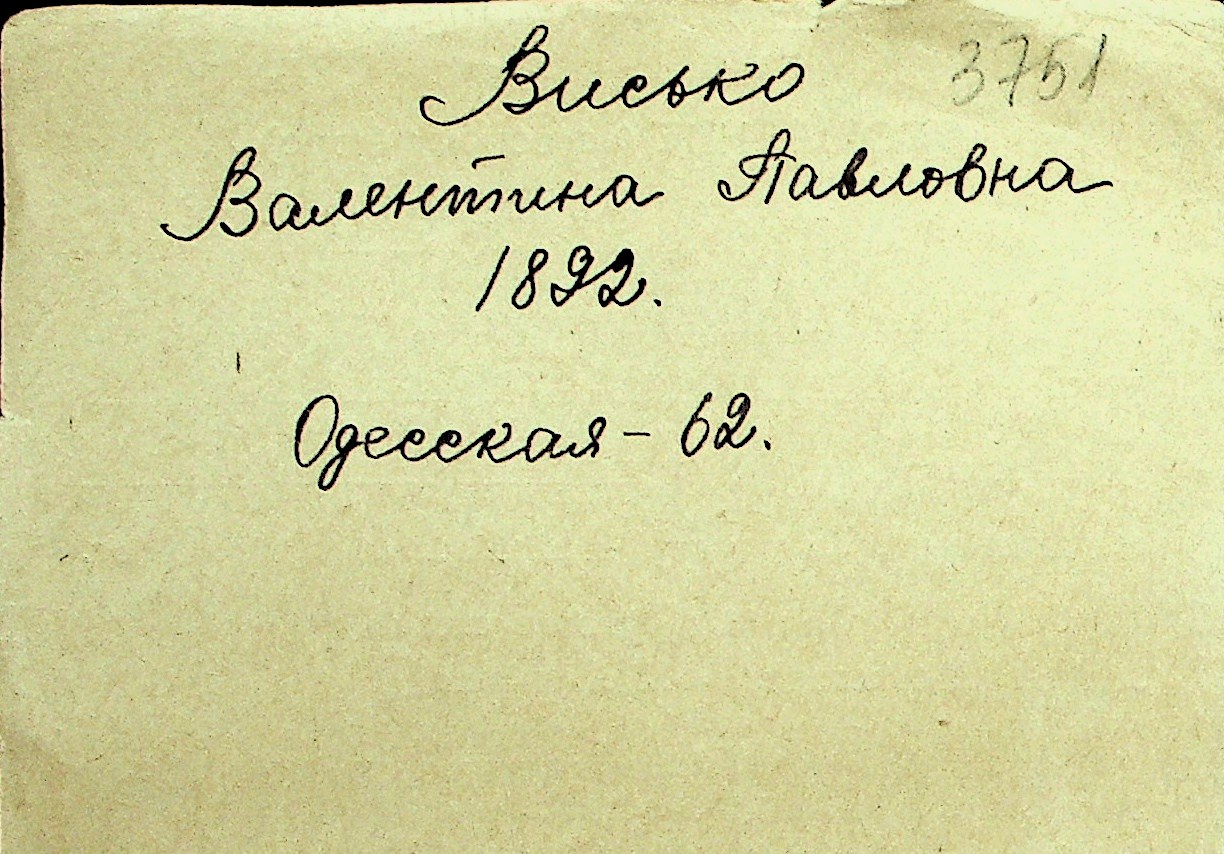 Висько 3751
Валентина Павловна
1892.
Одесская - 62.